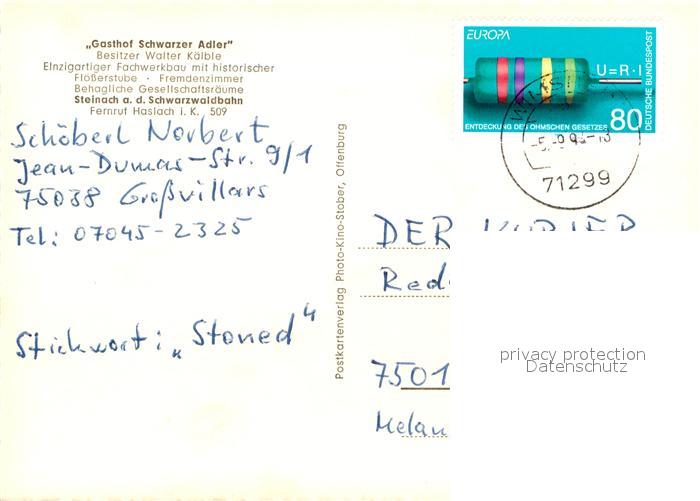 „Gasthof Schwarzer Adler"
Besitzer Walter Kälble
Einzigartiger Fachwerkbau mit historischer
Flößerstube · Fremdenzimmer
Behagliche Gesellschaftsräume
Steinach a. d. Schwarzwaldbahn
Fernruf Haslach i. K. 509
Schöberl Norbert
Jean-Dumas-Str. 9/1
75038 Großvillars
Tel: 07045-2325
Stichwort: „Stoned"
Postkartenverlag Photo-Kino-Stober, Offenburg
EUROPA
U=R·I
ENTDECKUNG DES OHMSCHEN GESETZES
80
DEUTSCHE BUNDESPOST
71299
DER KURIER
Red
7501
Melan
privacy protection
Datenschutz